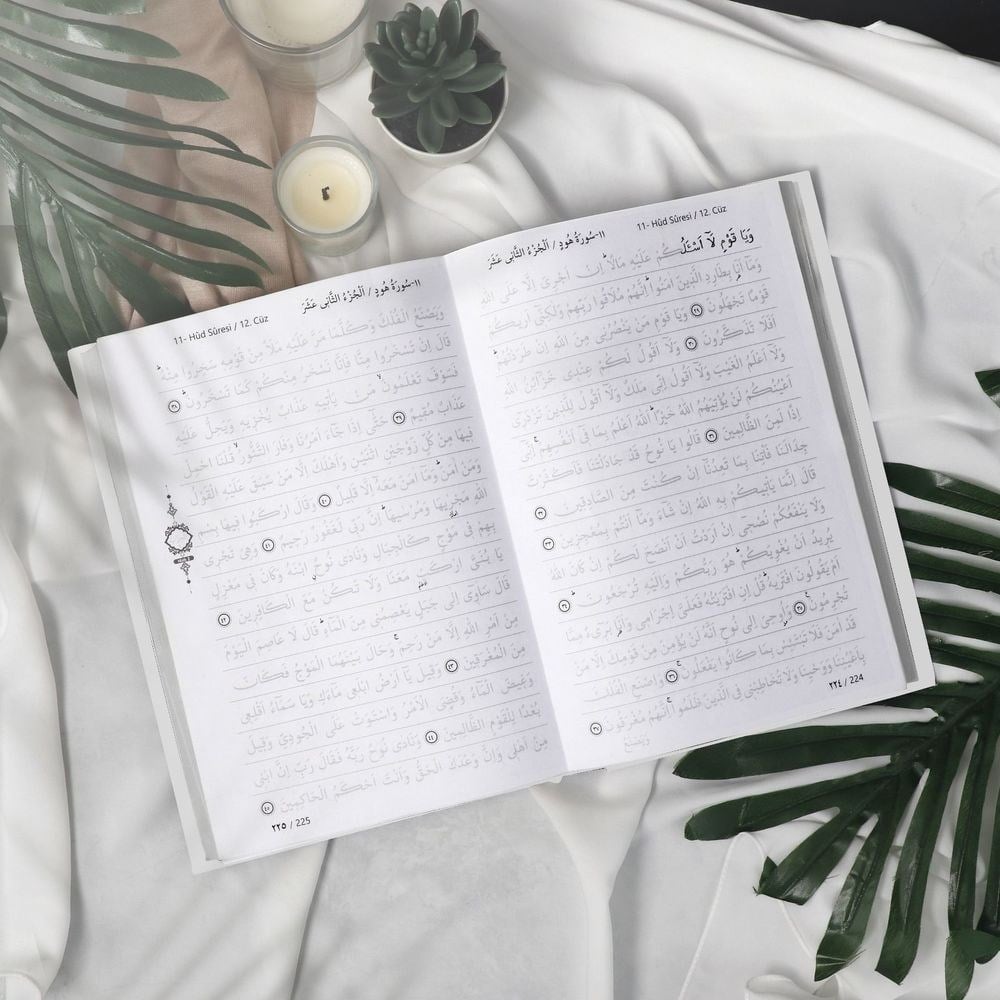 ١١-سُورَةُ هُودٍ / اَلْجُزْءُ الثَّانِى عَشَرَ 11- Hûd Sûresi / 12. Cüz
وَيَا قَوْمِ لَآ اَسْـَٔلُكُمْ عَلَيْهِ مَالاًۜ اِنْ اَجْرِىَ اِلَّا عَلَى اللّٰهِ
وَمَٓا اَنَا۬ بِطَارِدِ الَّذ۪ينَ اٰمَنُواۜ اِنَّهُمْ مُلَاقُوا رَبِّهِمْ وَلٰكِنّ۪ٓى اَرٰيكُمْ
قَوْمًا تَجْهَلُونَ ٢٩ وَيَا قَوْمِ مَنْ يَنْصُرُن۪ى مِنَ اللّٰهِ اِنْ طَرَدْتُهُمْۜ
اَفَلَا تَذَكَّرُونَ ٣٠ وَلَٓا اَقُولُ لَكُمْ عِنْد۪ى خَزَٓائِنُ اللّٰهِ
وَلَٓا اَعْلَمُ الْغَيْبَ وَلَٓا اَقُولُ اِنّ۪ى مَلَكٌ وَلَٓا اَقُولُ لِلَّذ۪ينَ تَزْدَر۪ٓى
اَعْيُنُكُمْ لَنْ يُؤْتِيَهُمُ اللّٰهُ خَيْرًاۜ اَللّٰهُ اَعْلَمُ بِمَا ف۪ٓى اَنْفُسِهِمْۚ اِنّ۪ٓى
اِذًا لَمِنَ الظَّالِم۪ينَ ٣١ قَالُوا يَا نُوحُ قَدْ جَادَلْتَنَا فَاَكْثَرْتَ
جِدَالَنَا فَأْتِنَا بِمَا تَعِدُنَٓا اِنْ كُنْتَ مِنَ الصَّادِق۪ينَ ٣٢
قَالَ اِنَّمَا يَأْت۪يكُمْ بِهِ اللّٰهُ اِنْ شَٓاءَ وَمَٓا اَنْتُمْ بِمُعْجِز۪ينَ ٣٣
وَلَا يَنْفَعُكُمْ نُصْح۪ٓى اِنْ اَرَدْتُ اَنْ اَنْصَحَ لَكُمْ اِنْ كَانَ اللّٰهُ
يُر۪يدُ اَنْ يُغْوِيَكُمْۜ هُوَ رَبُّكُمْ وَاِلَيْهِ تُرْجَعُونَۜ ٣٤
اَمْ يَقُولُونَ افْتَرٰيهُۜ قُلْ اِنِ افْتَرَيْتُهُ فَعَلَىَّ اِجْرَام۪ى وَاَنَا۬ بَر۪ٓىءٌ مِمَّا
تُجْرِمُونَ۟ ٣٥ وَاُو۫حِىَ اِلٰى نُوحٍ اَنَّهُ لَنْ يُؤْمِنَ مِنْ قَوْمِكَ اِلَّا مَنْ
قَدْ اٰمَنَ فَلَا تَبْتَئِسْ بِمَا كَانُوا يَفْعَلُونَۚ ٣٦ وَاصْنَعِ الْفُلْكَ
بِاَعْيُنِنَا وَوَحْيِنَا وَلَا تُخَاطِبْن۪ى فِى الَّذ۪ينَ ظَلَمُواۚ اِنَّهُمْ مُغْرَقُونَ ٣٧
وَيَصْنَعُ
٢٢٤ / 224
١١-سُورَةُ هُودٍ / اَلْجُزْءُ الثَّانِى عَشَرَ 11- Hûd Sûresi / 12. Cüz
وَيَصْنَعُ الْفُلْكَ وَكُلَّمَا مَرَّ عَلَيْهِ مَلَاٌ مِنْ قَوْمِه۪ سَخِرُوا مِنْهُۜ
قَالَ اِنْ تَسْخَرُوا مِنَّا فَاِنَّا نَسْخَرُ مِنْكُمْ كَمَا تَسْخَرُونَۜ ٣٨
فَسَوْفَ تَعْلَمُونَۙ مَنْ يَأْت۪يهِ عَذَابٌ يُخْز۪يهِ وَيَحِلُّ عَلَيْهِ
عَذَابٌ مُق۪يمٌ ٣٩ حَتّٰٓى اِذَا جَٓاءَ اَمْرُنَا وَفَارَ التَّنُّورُۙ قُلْنَا احْمِلْ
ف۪يهَا مِنْ كُلٍّ زَوْجَيْنِ اثْنَيْنِ وَاَهْلَكَ اِلَّا مَنْ سَبَقَ عَلَيْهِ الْقَوْلُ
وَمَنْ اٰمَنَۜ وَمَٓا اٰمَنَ مَعَهُٓ اِلَّا قَل۪يلٌ ٤٠ وَقَالَ ارْكَبُوا ف۪يهَا بِسْمِ
اللّٰهِ مَجْرٰۭيهَا وَمُرْسٰيهَاۜ اِنَّ رَبّ۪ى لَغَفُورٌ رَح۪يمٌ ٤١ وَهِىَ تَجْر۪ى
بِهِمْ ف۪ى مَوْجٍ كَالْجِبَالِ وَنَادٰى نُوحٌۨ ابْنَهُ وَكَانَ ف۪ى مَعْزِلٍ
يَا بُنَىَّ ارْكَبْ مَعَنَا وَلَا تَكُنْ مَعَ الْكَافِر۪ينَ ٤٢
قَالَ سَاٰو۪ٓى اِلٰى جَبَلٍ يَعْصِمُن۪ى مِنَ الْمَٓاءِۜ قَالَ لَا عَاصِمَ الْيَوْمَ
مِنْ اَمْرِ اللّٰهِ اِلَّا مَنْ رَحِمَۚ وَحَالَ بَيْنَهُمَا الْمَوْجُ فَكَانَ
مِنَ الْمُغْرَق۪ينَ ٤٣ وَق۪يلَ يَٓا اَرْضُ ابْلَع۪ى مَٓاءَكِ وَيَا سَمَٓاءُ اَقْلِع۪ى
وَغ۪يضَ الْمَٓاءُ وَقُضِىَ الْاَمْرُ وَاسْتَوَتْ عَلَى الْجُودِىِّ وَق۪يلَ
بُعْدًا لِلْقَوْمِ الظَّالِم۪ينَ ٤٤ وَنَادٰى نُوحٌ رَبَّهُ فَقَالَ رَبِّ اِنَّ ابْن۪ى
مِنْ اَهْل۪ى وَاِنَّ وَعْدَكَ الْحَقُّ وَاَنْتَ اَحْكَمُ الْحَاكِم۪ينَ ٤٥
٢٢٥ / 225